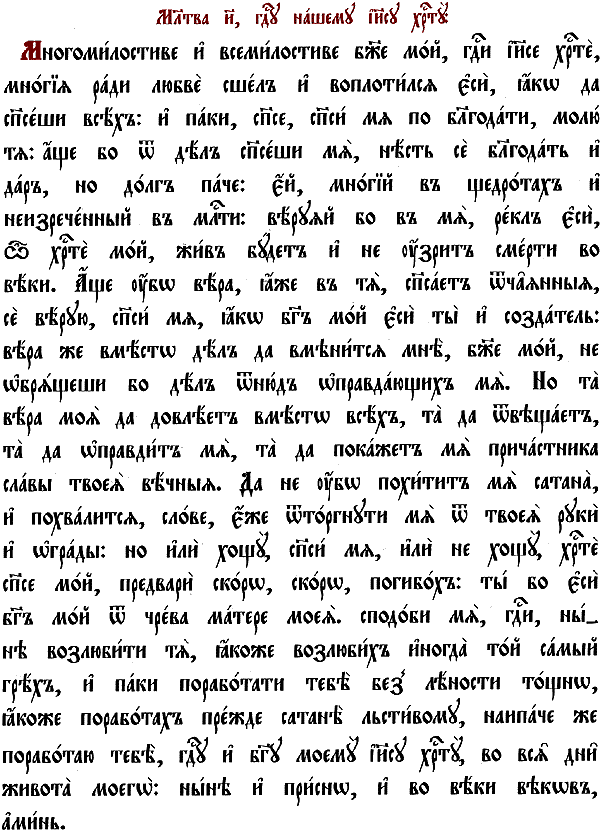 Мл҃тва и҃, гдⷭ҇ꙋ на́шемꙋ і҆и҃сꙋ хрⷭ҇тꙋ̀
Многоми́лостиве и҆ всеми́лостиве бж҃е мо́й, гдⷭ҇и і҆и҃се хрⷭ҇тѐ,
мно́гїѧ ра́ди любвѐ сше́лъ и҆ воплоти́лсѧ є҆сѝ, ꙗ҆́кѡ да
сп҃се́ши всѣ́хъ: и҆ па́ки, сп҃се, сп҃си́ мѧ по бл҃года́ти, молю́
тѧ: а҆́ще бо ѿ дѣ́лъ сп҃се́ши мѧ̀, нѣ́сть сѐ бл҃года́ть и҆
да́ръ, но до́лгъ па́че: є҆́й, мно́гїй въ щедро́тахъ и҆
неизрече́нный въ млⷭ҇ти: вѣ́рꙋѧй бо въ мѧ̀, ре́клъ є҆сѝ,
ѽ хрⷭ҇тѐ мо́й, жи́въ бꙋ́детъ и҆ не ᲂу҆́зритъ сме́рти во
вѣ́ки. А҆́ще ᲂу҆̀бѡ вѣ́ра, ꙗ҆́же въ тѧ̀, сп҃са́етъ ѿча́ѧнныѧ,
сѐ вѣ́рꙋю, сп҃си́ мѧ, ꙗ҆́кѡ бг҃ъ мо́й є҆сѝ ты̀ и҆ созда́тель:
вѣ́ра же вмѣ́стѡ дѣ́лъ да вмѣни́тсѧ мнѣ̀, бж҃е мо́й, не
ѡ҆брѧ́щеши бо дѣ́лъ ѿню́дъ ѡ҆правда́ющихъ мѧ̀. Но та̀
вѣ́ра моѧ̀ да довлѣ́етъ вмѣ́стѡ всѣ́хъ, та̀ да ѿвѣща́етъ,
та̀ да ѡ҆правди́тъ мѧ̀, та̀ да пока́жетъ мѧ̀ прича́стника
сла́вы твоеѧ̀ вѣ́чныѧ. Да не ᲂу҆̀бѡ похи́титъ мѧ̀ сатана̀,
и҆ похва́литсѧ, сло́ве, є҆́же ѿто́ргнꙋти мѧ̀ ѿ твоеѧ̀ рꙋкѝ
и҆ ѡ҆гра́ды: но и҆лѝ хощꙋ̀, сп҃си́ мѧ, и҆лѝ не хощꙋ̀, хрⷭ҇тѐ
сп҃се мо́й, предварѝ ско́рѡ, ско́рѡ, погибо́хъ: ты́ бо є҆сѝ
бг҃ъ мо́й ѿ чре́ва ма́тере моеѧ̀. сподо́би мѧ̀, гдⷭ҇и, ны́_
нѣ возлюби́ти тѧ̀, ꙗ҆́коже возлюби́хъ и҆ногда̀ то́й са́мый
грѣ́хъ, и҆ па́ки порабо́тати тебѣ̀ без̾ лѣ́ности то́щнѡ,
ꙗ҆́коже порабо́тахъ пре́жде сатанѣ̀ льсти́вомꙋ, наипа́че же
порабо́таю тебѣ̀, гдⷭ҇ꙋ и҆ бг҃ꙋ моемꙋ̀ і҆и҃сꙋ хрⷭ҇тꙋ̀, во всѧ̑ дни̑
живота̀ моегѡ̀: ны́нѣ и҆ при́снѡ, и҆ во вѣ́ки вѣкѡ́въ,
а҆ми́нь.